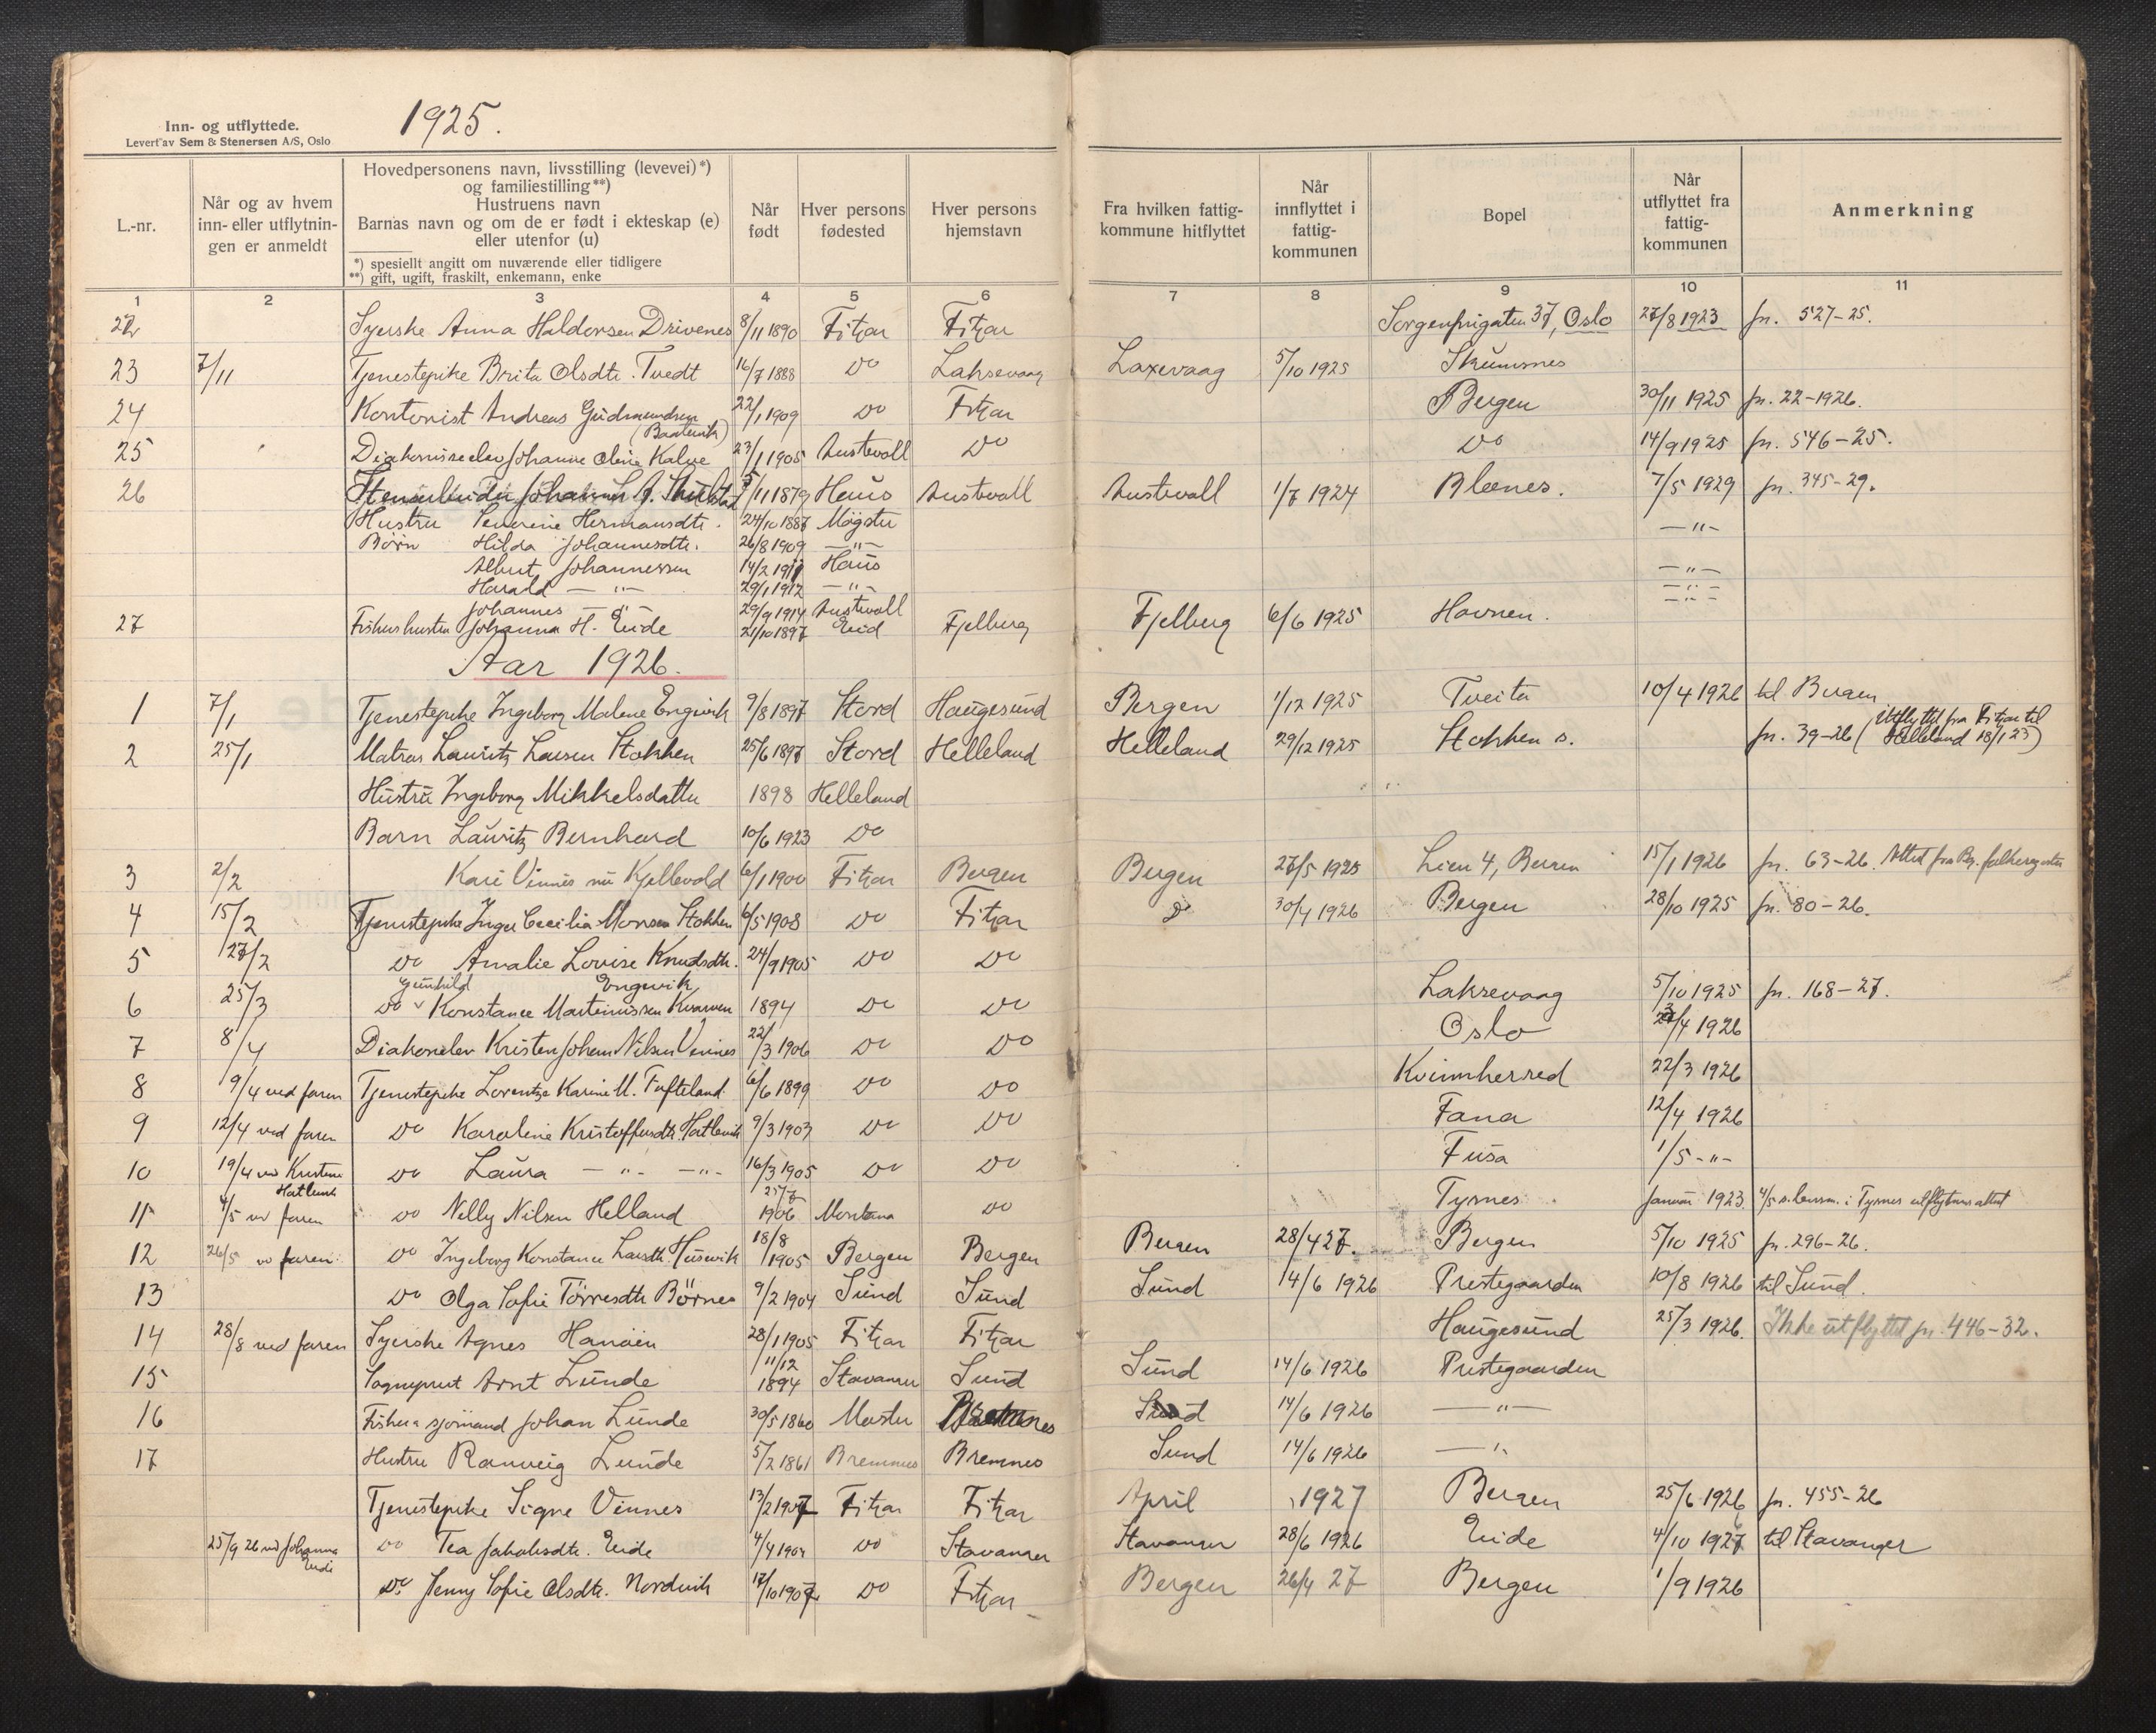 1925.
Inn- og utflyttede.
Levert av Sem & Stenersen A/S, Oslo
L.-nr.
Når og av hvem inn- eller utflytningen er anmeldt
Hovedpersonens navn, livsstilling (levevei)*)
og familiestilling**)
Hustruens navn
Barnas navn og om de er født i ekteskap (e)
eller utenfor (u)
*) spesiellt angitt om nuværende eller tidligere
**) gift, ugift, fraskilt, enkemann, enke
Når født
Hver persons fødested
Hver persons hjemstavn
Fra hvilken fattig-kommune hitflyttet
Når innflyttet i fattig-kommunen
Bopel
Når utflyttet fra fattig-kommunen
Anmerkning
1 2 3 4 5 6 7 8 9 10 11
22 Syerske Anna Haldorsen Drivenes 8/11 1890 Fitjar Fitjar Sorgenfrigaten 37, Oslo 27/8 1923 jn. 527-25.
23 7/11 Tjenestepike Brita Olsdtr. Tvedt 16/7 1888 Do Laksevaag Laxevaag 5/10 1925 Skumsnes
24 Kontorist Andreas Gudmundsen (Baatevik) 22/1 1909 Do Fitjar Bergen 30/11 1925 jn. 22-1926.
25 Diakonisseelev Johanne Oline Kalve 23/1 1905 Austevoll Do Do 14/9 1925 jn. 546-25.
26 Johannes J. 5/11 1879 Haus Austevoll Austevoll 1/7 1924 Blænes. 7/5 1929 jn. 345-29.
Hustru Severine Hermansdtr. 24/10 1887 Møgster -"-
Børn Hilda Johannesdtr. 26/8 1909 -"-
Albert Johannessen 14/2 1911 Haus -"-
Harald -"- 29/1 1912 -"- -"-
Johannes -"- 29/9 1914 Austevoll -"-
27 Fiskerhustru Johanna H. Eide 21/10 1897 Eid Fjelberg Fjelberg 6/6 1925 Havnen.
Aar 1926.
1 7/1 Tjenestepike Ingeborg Malene Engevik 9/8 1897 Stord Haugesund Bergen 1/12 1925 Tveita 10/4 1926 til Bergen
2 25/1 Matros Lauritz Larsen Stokken 25/6 1897 Stord Helleland Helleland 29/12 1925 Stokken s. jn. 39-26 (Utflyttet fra Fitjar til Helleland 18/1 23)
Hustru Ingeborg Mikkelsdatter 1898 Helleland
Barn Lauritz Bernhard 10/6 1923 Do
3 2/2 Kari Vinnes nu Kjellevold 6/1 1900 Fitjar Bergen Bergen 27/5 1925 Lien 4, Bergen 15/1 1926 jn. 63-26. Attest fra Bg. folkeregister
4 15/2 Tjenestepike Inger Cecilia Monsen Stokken 6/5 1908 Do Fitjar Do 30/4 1926 Bergen 28/10 1925 jn. 80-26.
5 27/2 Do Amalie Lovise Knudsdtr. Engevik 24/9 1905 Do Do Laksevaag 5/10 1925 jn. 168-27.
6 25/3 Do Gunhild Konstance Martinussen Kvarven 1894 Do Do Oslo 23/4 1926
7 8/4 Diakonelev Kristen Johan Nilsen Vinnes 22/3 1906 Do Do Kvinnherred 22/3 1926
8 9/4 ved faren Tjenestepike Lorentze Karine M. Tufteland 6/6 1899 Do Do Fana 12/4 1926
9 12/4 ved faren Do Karoline Kristoffersdtr. Hatlevik 9/3 1903 Do Do Fusa 1/5 -"-
10 19/4 ved Kristine Hatlevik Do Laura -"- -"- 16/3 1905 Do Do Tysnes Januar 1923 4/5 s. lensm. i Tysnes utflytnsattest
11 4/5 ved faren Do Nelly Nilsen Helland 25/7 1906 Montana Do
12 26/5 v faren Do Ingeborg Konstance Larsdtr. 18/8 1905 Bergen Bergen Bergen 28/4 27. Bergen 5/10 1925 jn. 296-26.
13 Do Olga Sofie Tørresdtr. Børnes 9/2 1904 Sund Sund Sund 14/6 1926 Prestegaarden 10/8 1926 til Sund.
14 28/8 ved faren Syerske Agnes Hanøen 28/1 1905 Fitjar Fitjar Haugesund 25/3 1926. Ikke utflyttet jn. 446-32.
15 Sogneprest Arnt Lunde 11/12 1894 Stavanger Sund Sund 14/6 1926 Prestegaarden
16 Fisker & sjømand Johan Lunde 30/5 1860 Moster Bremnes Sund 14/6 1926 -"-
17 Hustru Ranveig Lunde 5/2 1861 Bremnes Bremnes Sund 14/6 1926 -"-
Tjenestepike Signe Vinnes 13/2 1907 Fitjar Fitjar April 1927 Bergen 25/6 1926 jn. 455-26
25/9 26 ved Johanna Eide Do Tea Jakobsdtr. Eide 4/4 1904 Do Stavanger Stavanger 28/6 1926 Eide 4/10 1927 til Stavanger
Do Jenny Sofie Olsdtr. Nordvik 17/10 1907 Do Fitjar Bergen 26/4 27 Bergen 1/9 1926